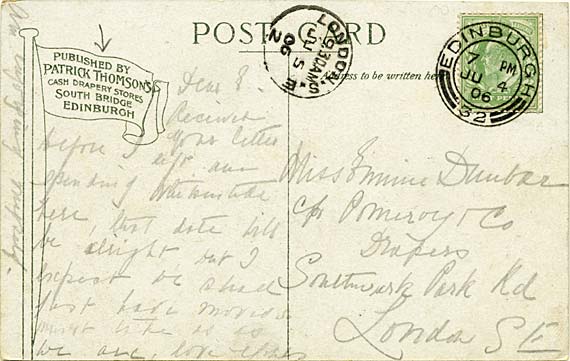 POST CARD
PUBLISHED BY
PATRICK THOMSONS
CASH DRAPERY STORES
SOUTH BRIDGE
EDINBURGH
LONDON. S.E
9.30AM
JU 5
06
Address to be written here
EDINBURGH
7 PM
JU 4
06
32
Dear E.
Received
your letter
before I left am
spending Whitsuntide
here, that date will
be alright but I
expect we shall
just have moved
must take us as
we are, love
Miss Dunbar
c/o Pomeroy & Co
Drapers
Southwark Park Rd
London SE